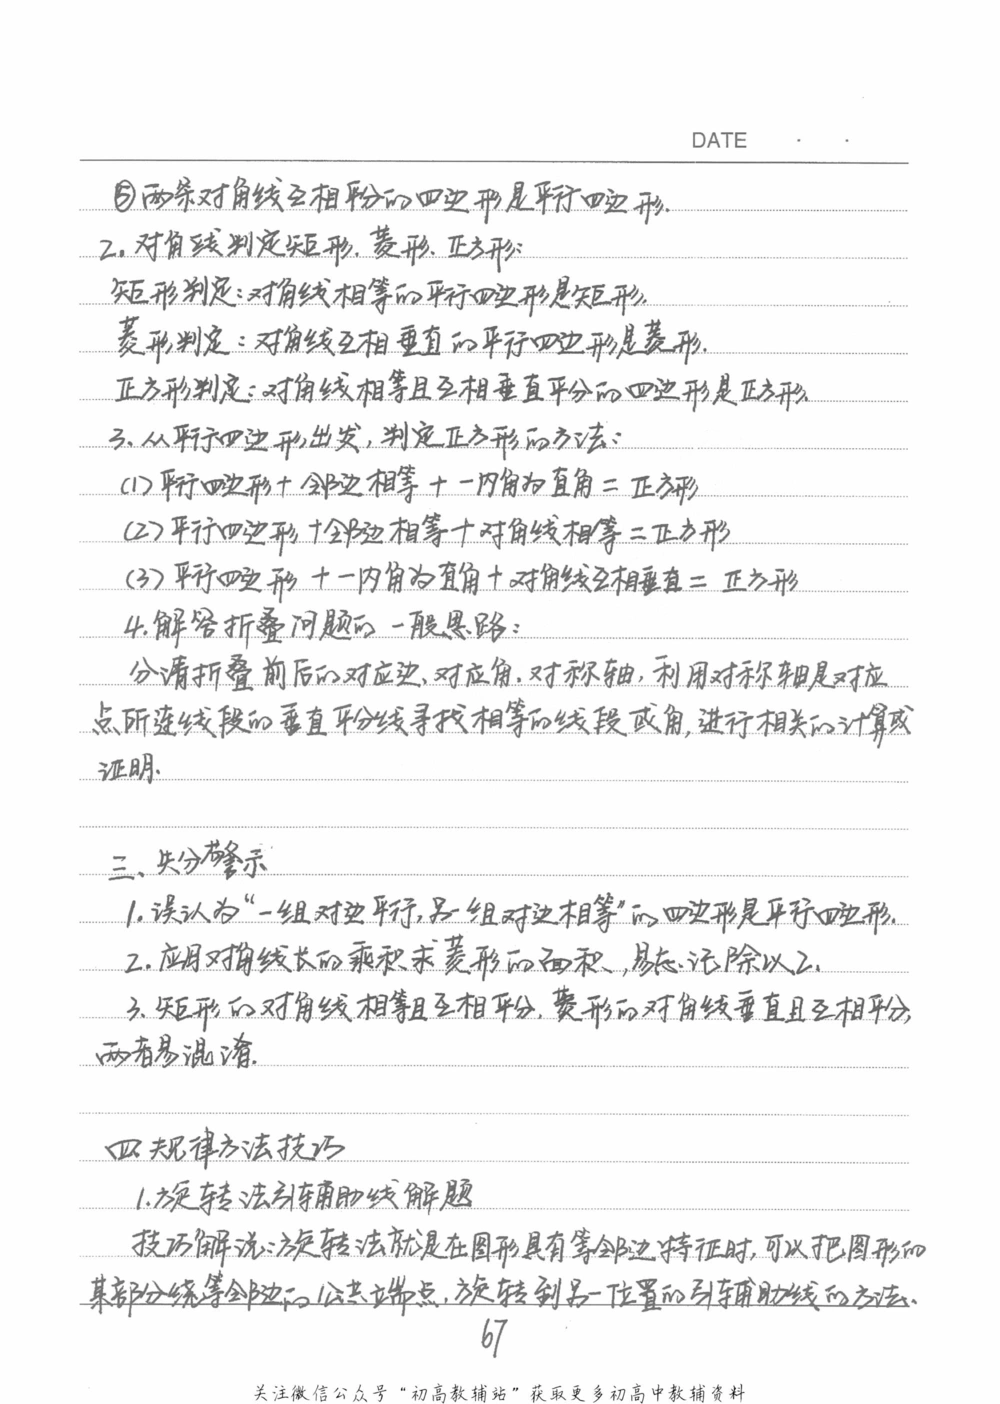 DATE · ·
⑤两条对角线互相平分的四边形是平行四边形.
2.对角线判定矩形、菱形、正方形:
矩形判定:对角线相等的平行四边形是矩形.
菱形判定:对角线互相垂直的平行四边形是菱形.
正方形判定:对角线相等且互相垂直平分的四边形是正方形.
3.从平行四边形出发,判定正方形的方法:
(1)平行四边形+邻边相等+一内角为直角=正方形
(2)平行四边形+邻边相等+对角线相等=正方形
(3)平行四边形+一内角为直角+对角线互相垂直=正方形
4.解答折叠问题的一般思路:
分清折叠前后的对应边、对应角、对称轴,利用对称轴是对应
点所连线段的垂直平分线寻找相等的线段或角,进行相关的计算或
证明.
三、失分警示
1.误认为“一组对边平行,另一组对边相等”的四边形是平行四边形.
2.应用对角线长的乘积求菱形的面积,易忘记除以2.
3.矩形的对角线相等且互相平分,菱形的对角线垂直且互相平分,
两者易混淆.
四.规律方法技巧
1.旋转法引辅助线解题
技巧解说:旋转法就是在图形具有等邻边特征时,可以把图形的
某部分绕等邻边的公共端点,旋转到另一位置的引辅助线的方法.
67
关注微信公众号“初高教辅站”获取更多初高中教辅资料